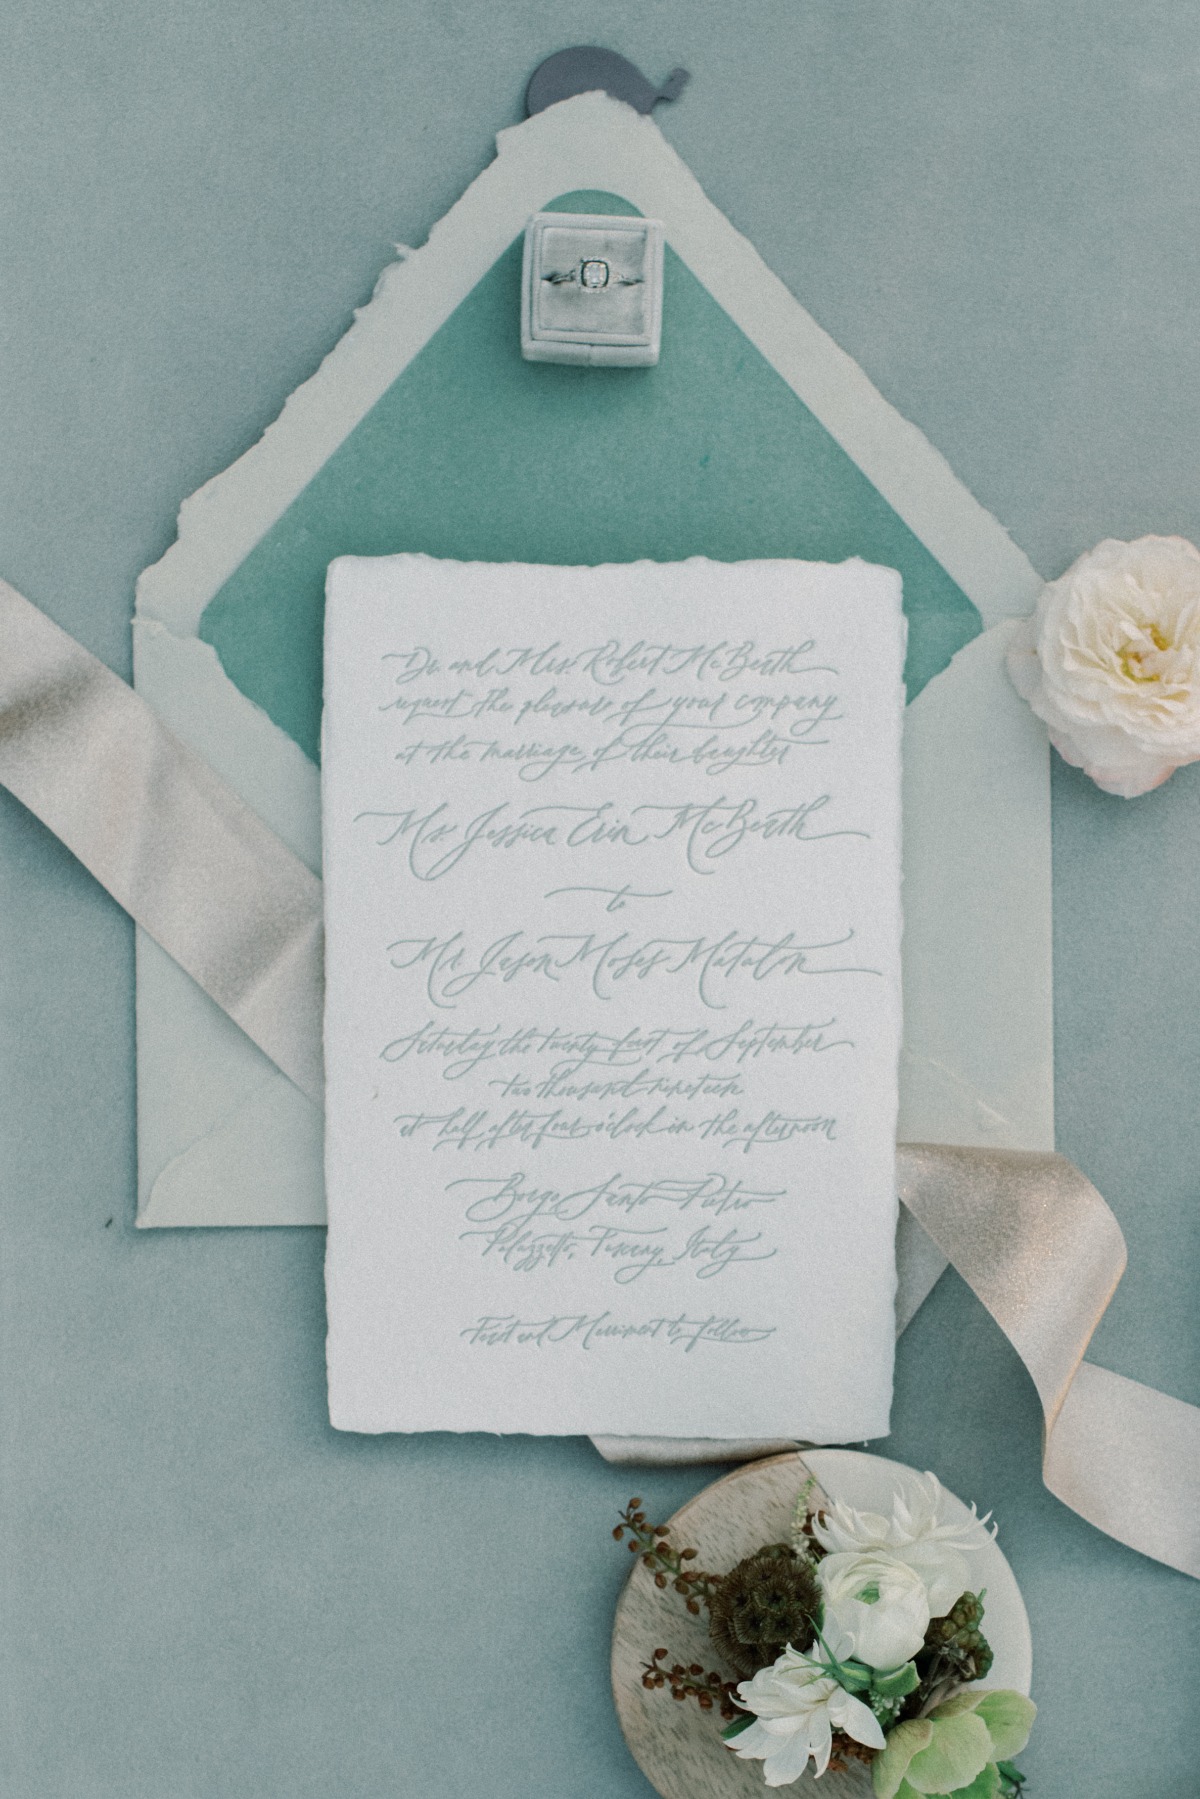 Dr. and Mrs. Robert McBeath
request the pleasure of your company
at the marriage of their daughter
Ms. Jessica Erin McBeath
to
Mr. Jason Moses Matalon
Saturday the twenty first of September
two thousand nineteen
at half after four o'clock in the afternoon
Borgo Santo Pietro
Palazzetto, Tuscany, Italy
Feast and Merriment to follow